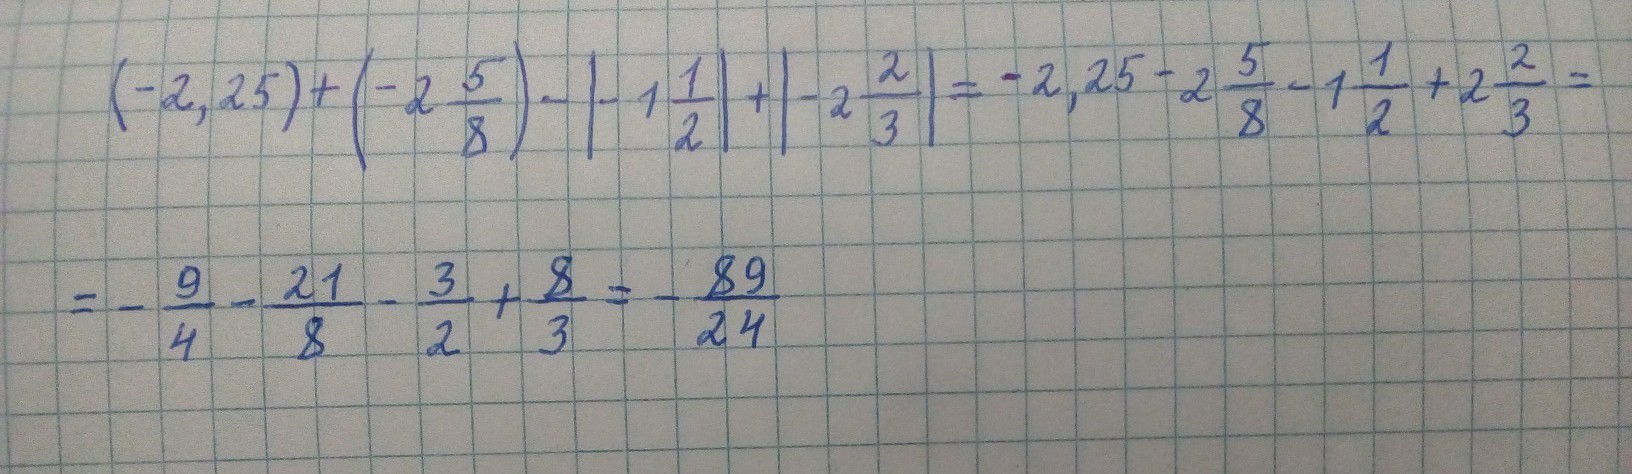 (-2,25)+(-2 5/8)-|-1 1/2|+|-2 2/3|=-2,25-2 5/8-1 1/2+2 2/3=
=-9/4-21/8-3/2+8/3=-89/24